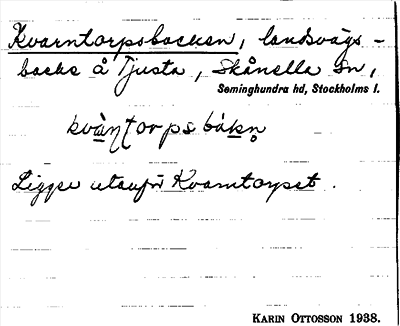 Kvarntorpsbacken, landsvägs-
backe å Tjusta, Skånella sn,
Seminghundra hd, Stockholms l.
kvà̱ṇṭorpsbákn̥
Ligger utanför Kvarntorpet.
KARIN OTTOSSON 1938.